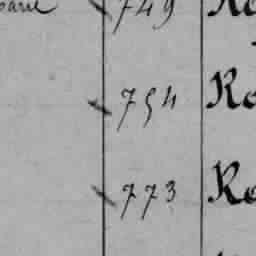 749 Ro
754 Ro
773 Ro